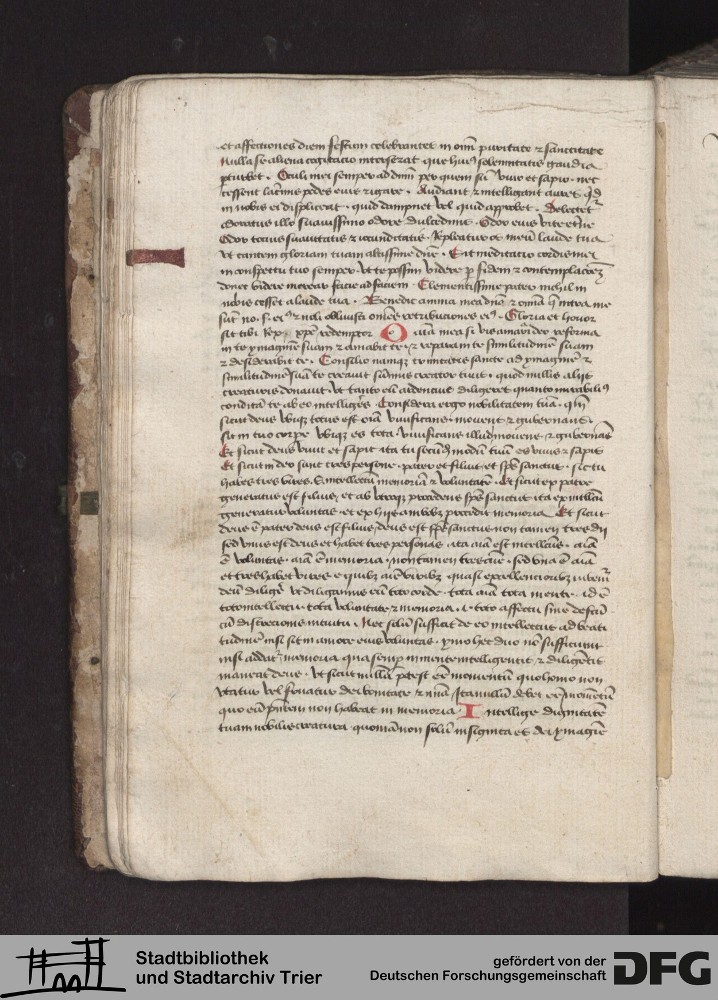 et affectiones diem festum celebrantes in omni puritate et sanctitate
Nulla se aliena cogitacio interserat que huius solemnitatis gaudia
perturbet. Oculi mei semper ad dominum per quem sunt vivo et sapio. nec
cessent lacrimis pedes eius rigare. Audiant et intelligant aures quid
in nobis ei displiceat. quid dampnet vel quid approbet. Delectetur
odoratus illo suavissimo odore dulcedinis. Odor eius vite eterne
Odor tocius suavitatis et iocunditatis. Repleatur os meum laude tua
vt cantem gloriam tuam altissime domine. Sit meditatio cordis mei
in conspectu tuo semper. vt te possim videre per fidem et contemplacionem
donec videre merear facie ad faciem. Clementissime pater nichil in
nobis cesset a laude tua. Benedic anima mea domino et omnia que intra me
sunt no. s. eius et noli oblivisci omnes retributiones eius. Gloria et honor
sit tibi Rex xpe redemptor O aia mea si vis amari a deo reforma
in te ymaginem suam et amabit te. et repara in te similitudinem suam
et desiderabit te. Consilio namque trinitatis sancte ad ymaginem et
similitudinem suam te creavit summus creator tuus. quod nullis aliis
creaturis donavit. vt tanto eum ardencius diligeres quanto mirabilius
conditam te ab eo intelligeres. Considera ergo nobilitatem tuam. quoniam
sicut deus vbique totus est omnia vivificans. movens et gubernans.
sic in tuo corpore vbique es tota. vivificans illud movens et gubernans
Et sicut deus vivit et sapit ita tu secundum modum tuum es vivis et sapis
Et sicut in deo sunt tres persone. pater et filius et spiritus sanctus. sic tu
habes tres vires. s. intellectum memoriam et voluntatem. Et sicut ex patre
generatus est filius. et ab utroque procedens spiritus sanctus ita ex intellectu
generatur voluntas. et ex hijs ambobus procedit memoria. Et sicut
deus est pater deus est filius deus est spiritus sanctus non tamen tres dii
sed vnus est deus et habet tres personas. ita aia est intellectus. aia
est voluntas. aia est memoria. non tamen tres aie. sed vna est aia
et tres habet vires. e quibus aie viribus quasi excellencioribus iubemur
deum diligere vt diligamus eum toto corde. tota aia tota mente. id est
toto intellectu. tota voluntate et memoria. i. toto affectu sine defectu
cum discrecionis intuitu. Nec solum sufficit de eo intellectus ad beati
tudinem nisi sit in amore eius voluntas. ymo hec duo non sufficiunt
nisi addatur memoria qua semper in mente intelligentis et diligentis
maneat deus. Vt sicut nullum potest esse momentum quo homo non
vtatur vel fruatur dei bonitate et misericordia. Ita nullum debet esse momentum
quo eum presentem non habeat in memoria. Intellige dignitatem
tuam nobilis creatura quoniam non solum insignita es dei ymagine
Stadtbibliothek
und Stadtarchiv Trier
gefördert von der
Deutschen Forschungsgemeinschaft
DFG